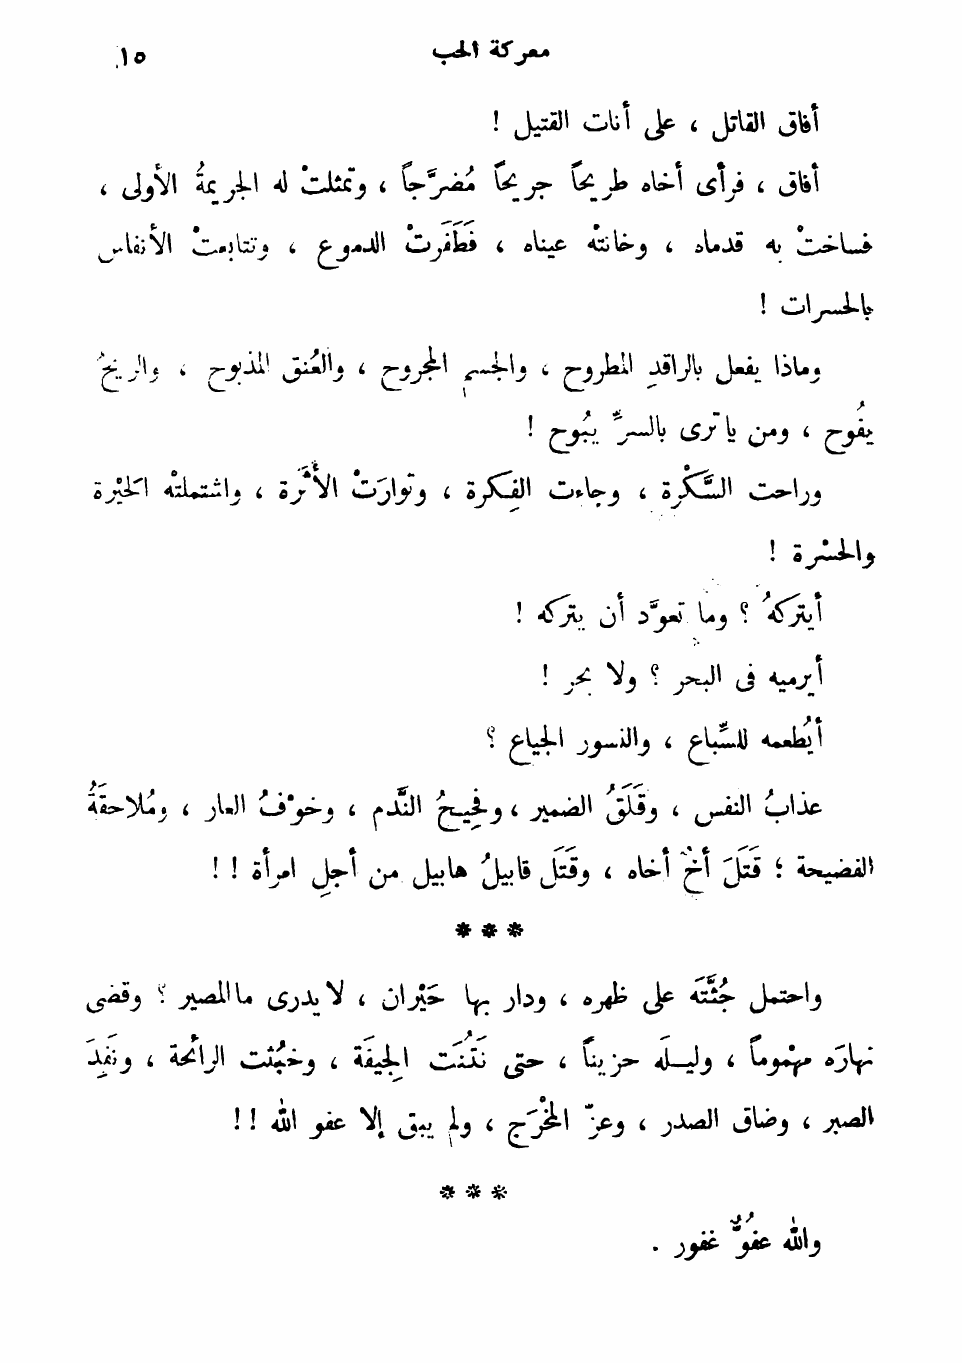 معركة الحب ١٥
أفاق القاتل ، على أنات القتيل !
أفاق ، فرأى أخاه طريحاً جريحاً مُضرَّجاً ، وتمثلتْ له الجريمةُ الأولى ،
فساختْ به قدماه ، وخانتْه عيناه ، فَطَفَرتْ الدموع ، وتتابعتْ الأنفاس
بالحسرات !
وماذا يفعل بالراقدِ المطروح ، والجسمِ المجروح ، والعُنق المذبوح ، والريحُ
يفُوح ، ومن يا ترى بالسرِّ يبُوح !
وراحت السَّكْرة ، وجاءت الفِكرة ، وتوارَتْ الأَثَرة ، واشتملتْه الحَيْرة
والحسْرة !
أيتركهُ ؟ وما تعوَّد أن يتركه !
أيرميه فى البحر ؟ ولا بحر !
أيُطعمه للسِّباع ، والنسور الجياع ؟
عذابُ النفس ، وقَلَقُ الضمير ، وفحِيحُ النَّدم ، وخوْفُ العار ، ومُلاحقَةُ
الفضيحة ؛ قَتَلَ أخٌ أخاه ، وقَتَل قابيلُ هابيل من أجلِ امرأة ! !
* * *
واحتمل جُثَّتَه على ظهره ، ودار بها حَيْران ، لا يدرى ما المصير ؟ وقضى
نهارَه مهْموماً ، وليــلَه حزيناً ، حتى نَتُنَت الجِيفَة ، وخبُثت الرائحة ، ونَفِدَ
الصبر ، وضاق الصدر ، وعزّ المخْرَج ، ولم يبق إلا عفو الله ! !
* * *
والله عفُوٌّ غفور .